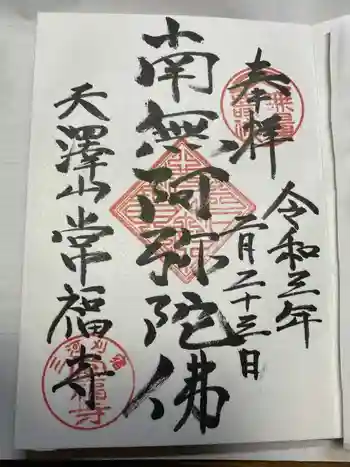 奉拝
令和三年
二月二十三日
南無阿弥陀佛
天澤山常福寺
三河刈谷